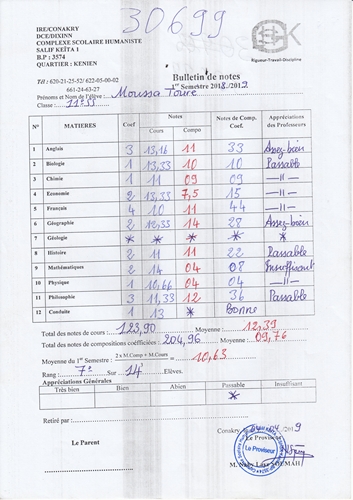 30699
IRE/CONAKRY
DCE/DIXINN
COMPLEXE SCOLAIRE HUMANISTE
SALIF KEÏTA I
B.P : 3574
QUARTIER : KENIEN
Rigueur-Travail-Discipline
Tél : 620-21-25-52/ 622-05-00-02
661-24-63-27
Bulletin de notes
1er Semestre 2018/2019
Prénoms et Nom de l'élève : Moussa Touré
Classe : 11e SS
N° MATIERES Coef Notes Notes de Comp. Coef. Appréciations des Professeurs
Cours Compo
1 Anglais 3 13,16 11 33 Assez-bien
2 Biologie 1 13,33 10 10 Passable
3 Chimie 1 11 09 09 —//—
4 Economie 2 13,33 7,5 15 —//—
5 Français 4 10 11 44 —//—
6 Géographie 2 12,33 14 28 Assez-bien
7 Géologie * * * * *
8 Histoire 2 11 11 22 Passable
9 Mathématiques 2 14 04 08 Insuffisant
10 Physique 1 10,66 04 04 —//—
11 Philosophie 3 11,33 12 36 Passable
12 Conduite 1 13 * Bonne
Total des notes de cours : 123,90 Moyenne : 12,39
Total des notes de compositions coefficiées : 204,96 Moyenne : 09,76
Moyenne du 1er Semestre : 2 x M.Comp + M.Cours = 10,63
3
Rang : 7e Sur 14 Elèves.
Appréciations Générales
Très bien Bien Abien Passable Insuffisant
*
Retiré par :
Conakry, /2019
Le Parent
Le Proviseur
Le Proviseur